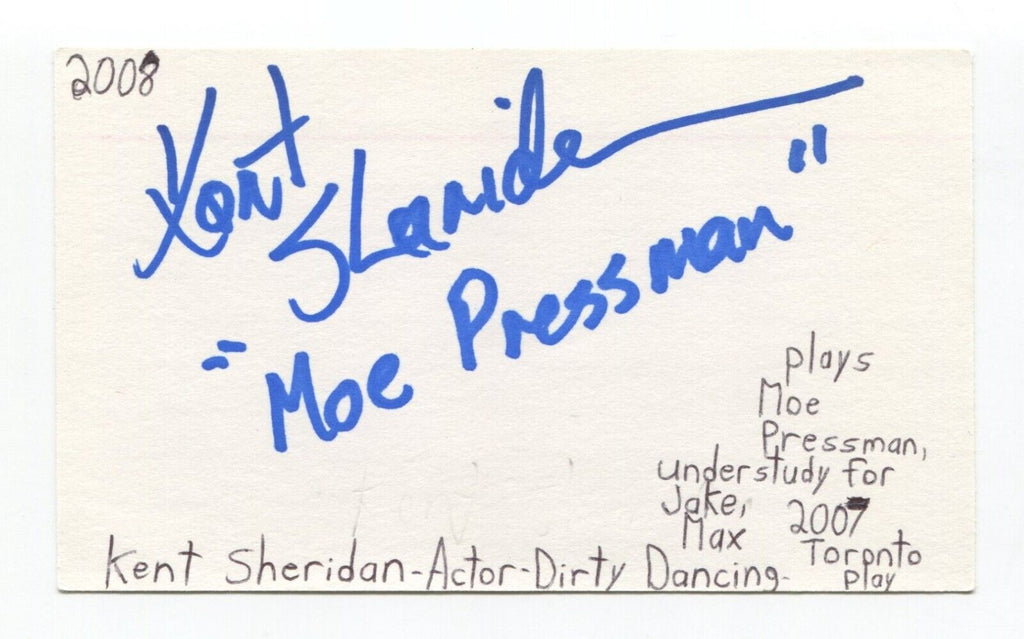 2008
Kent
Sheridan
"Moe Pressman"
plays
Moe
Pressman,
understudy for
Jake,
Max
2007
Toronto
play
Kent Sheridan-Actor-Dirty Dancing-